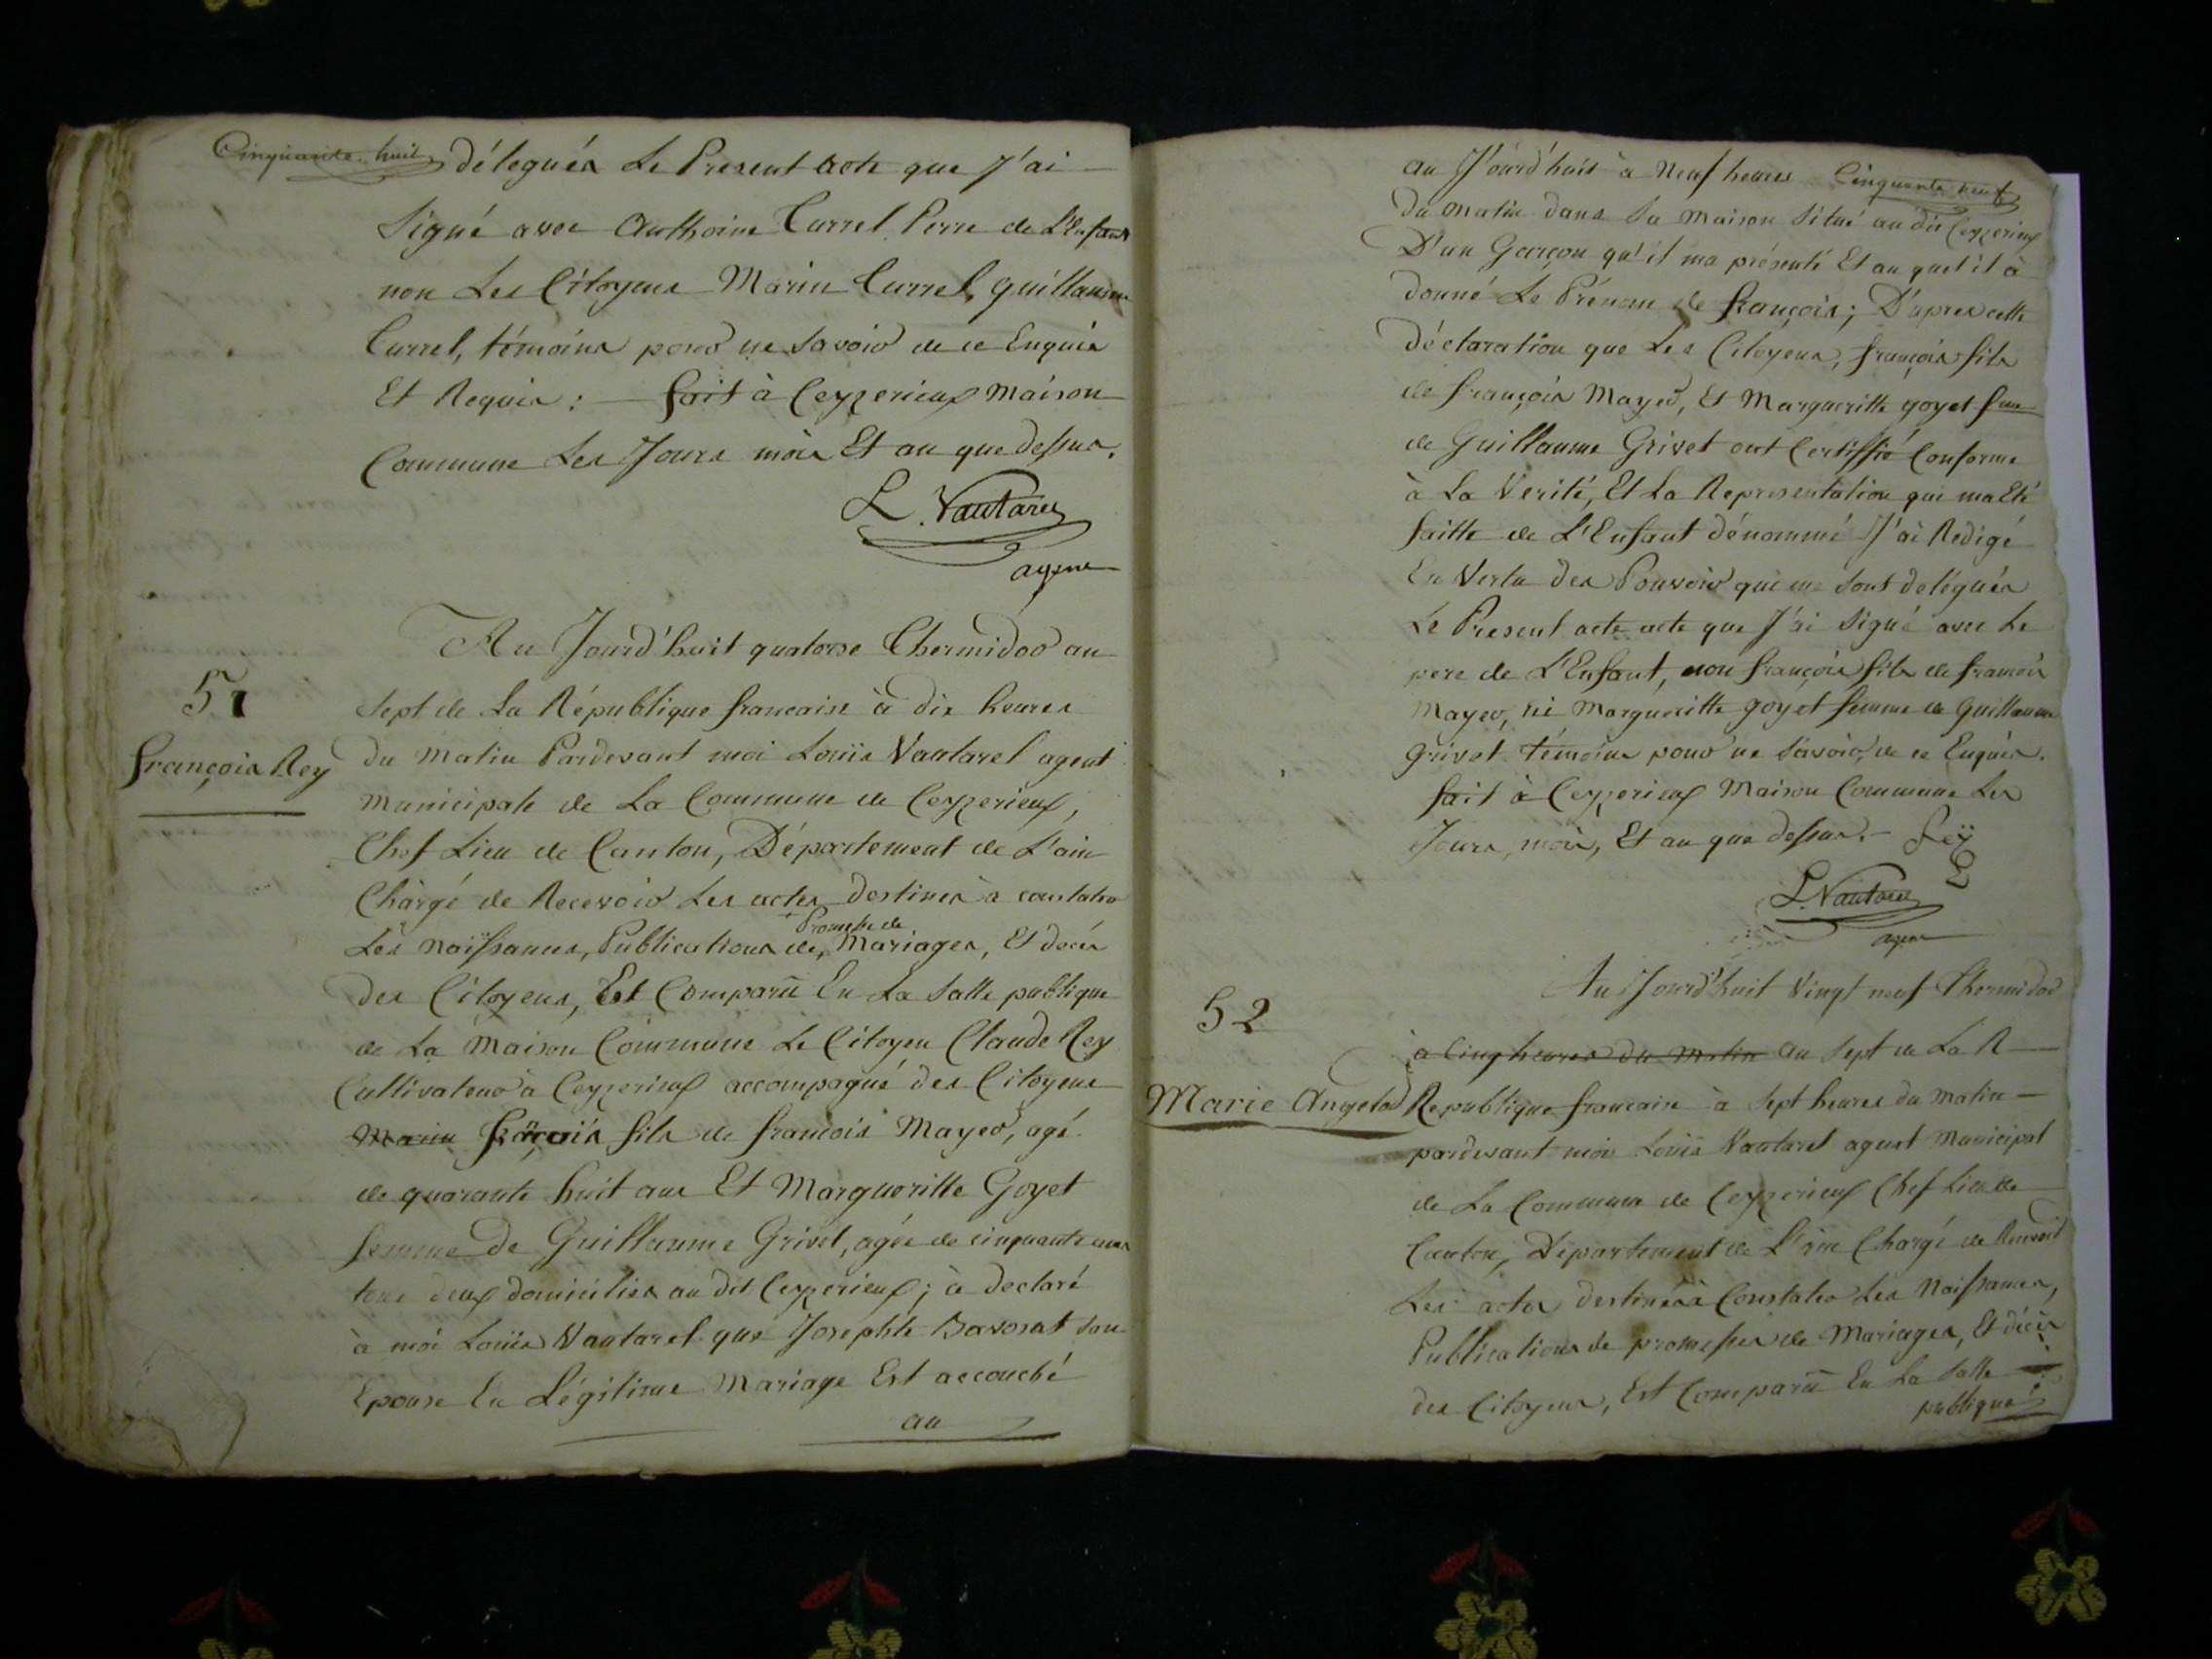 Cinquante huit
délegués Le Present acte que J'ai
Signé avec Anthoine Currel Perre de L'Enfant
non Les Citoyens Marin Currel, guillaume
Currel, témoins pour ne savoir de ce Enquis
Et Requis : fait à Ceyzerieux Maison
Commune Les Jours mois Et an que dessus.
L. Vautarel
agent
51
françois Rey
Au Jourd'huit quatorse Thermidor an
sept de La République francaise à dix heures
du Matin Pardevant moi Louis Vautarel agent
Municipale de La Commune de Ceyzerieux,
Chef Lieu de Canton, Département de L'ain
Chargé de Recevoir Les actes destinés à constater
Promesse de
Les Naissances, Publications de, Mariages, Et décés
des Citoyens, Est Comparu En La Salle publique
de La Maison Commune Le Citoyen Claude Rey
Cultivateur à Ceyzerieux accompagné des Citoyens
Marin françois fils de francois Mayer, agé
de quarante huit ans Et Margueritte Goyet
femme de Guillaume Grivet, agée de cinquante ans
tous deux domiciliés au dit Ceyzerieux; à declaré
à moi Louis Vautarel que Josephte Bavosat son
Epouse En Légitime Mariage Est accouché
au
Cinquante neuf
au Jourd'huit à Neuf heures
du matin dans sa maison situé au dit Ceyzerieux
D'un Garçon qu'il ma présenté Et au quel il à
donné Le Prénom de françois; D'apres cette
déclaration que Les Citoyens, françois fils
de françois Mayer, Et Margueritte goyet
de Guillaume Grivet ont Certiffié Conforme
à La Verité, Et La Representation qui ma Eté
faitte de L'Enfant dénommé J'ai Redigé
En Vertu des Pouvoir qui me sont delégués
Le Present acte acte que J'ai Signé avec Le
pere de L'Enfant, non françois fils de francois
Mayer, ni Margueritte goyet femme de Guillaume
Grivet témoins pour ne savoir, de ce Enquis.
fait à Ceyzerieux Maison Commune Les
Jours, mois, Et an que dessus.
L. Vautarel
agent
52
Marie Angelod
Au Jourd'huit Vingt neuf Thermidor
à Cinq heures du Matin an sept de La R
Republique francaise à sept heures du matin
pardevant moi Louis Vautarel agent Municipal
de La Commune de Ceyzerieux Chef Lieu de
Canton, Département de L'ain Chargé de Recevoir
Les actes destinés à Constater Les Naissances,
Publications de promesses de Mariages, Et décès
des Citoyens, Est Comparu En La Salle
publique